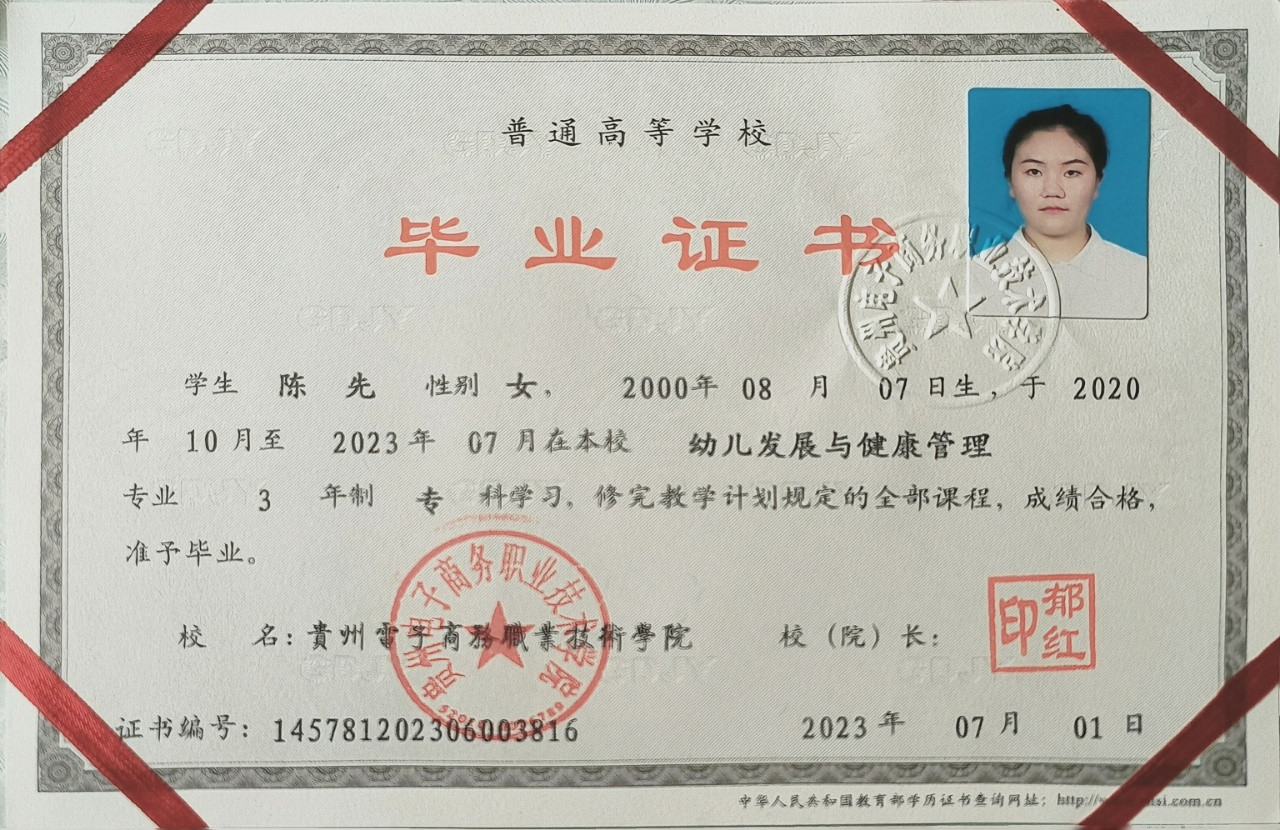 普通高等学校
毕业证书
贵州电子商务职业技术学院
学生 陈先 性别 女， 2000年 08 月 07 日生，于 2020
年 10 月至 2023 年 07 月在本校 幼儿发展与健康管理
专业 3 年制 专 科学习，修完教学计划规定的全部课程，成绩合格，
准予毕业。
贵州电子商务职业技术学院
校 名：貴州電子商務職業技術學院 校（院）长：
郁红印
证书编号：145781202306003816 2023 年 07 月 01 日
中华人民共和国教育部学历证书查询网址：